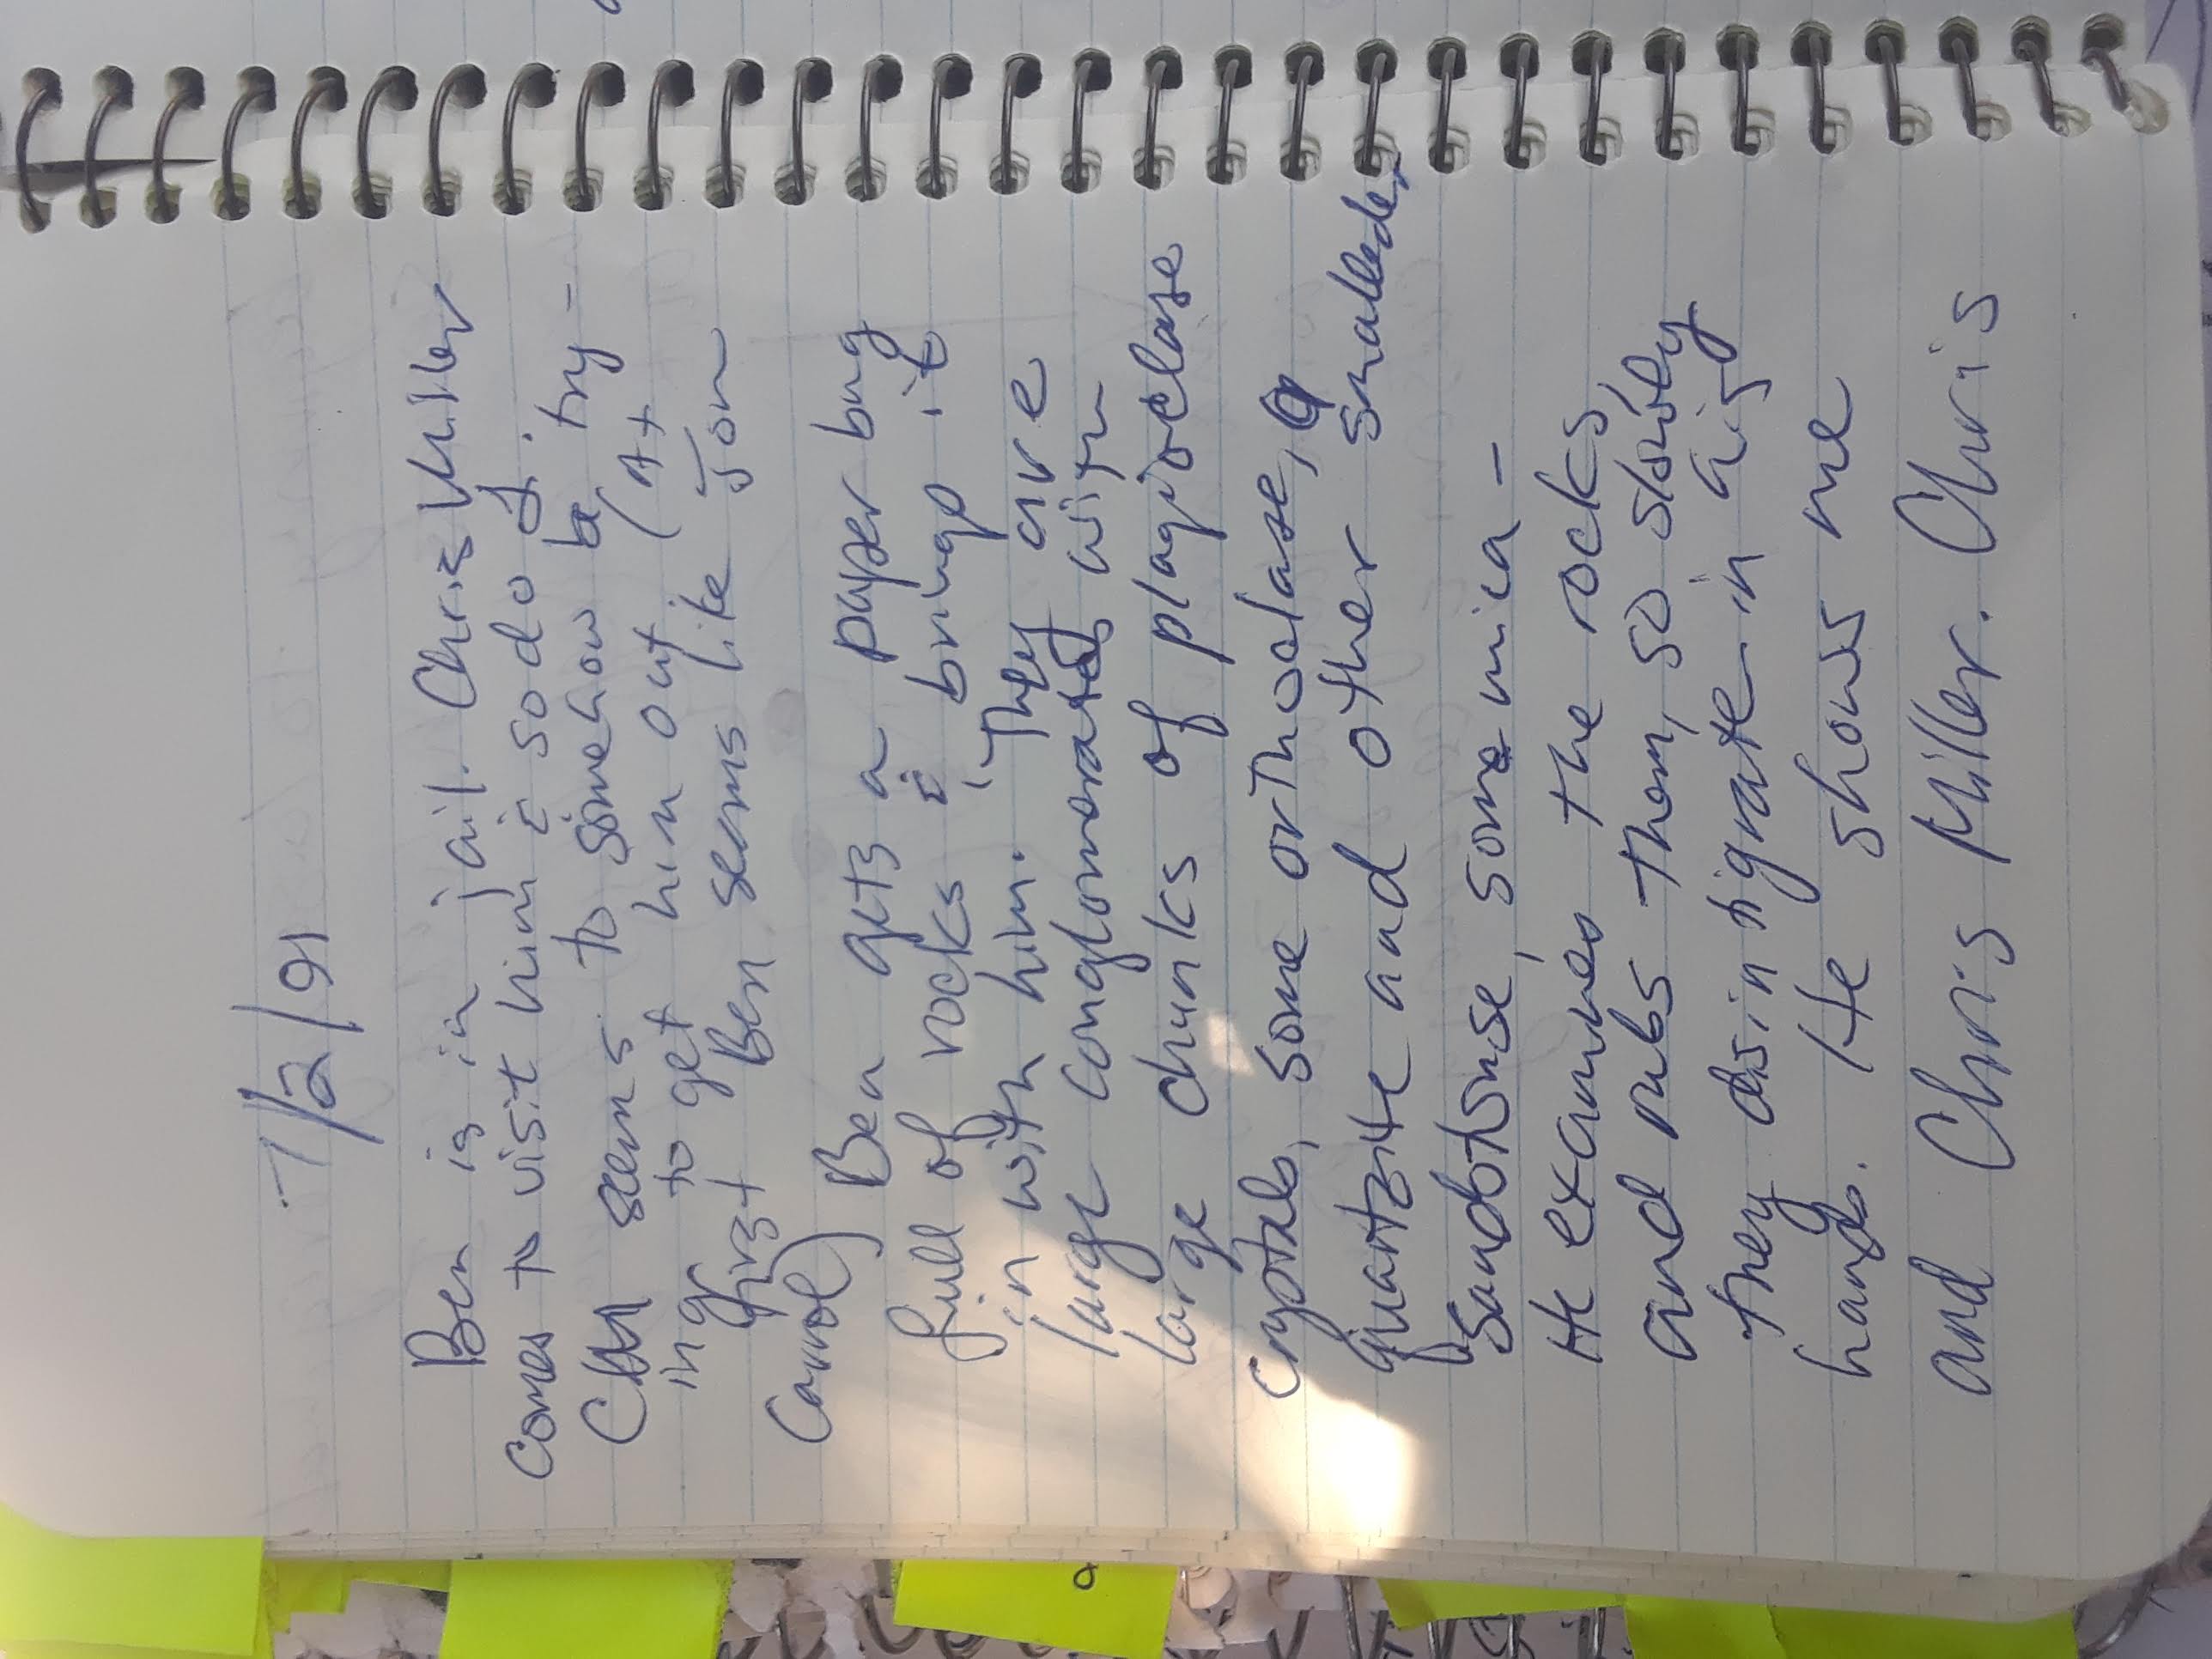 7/2/91
Ben is in jail. Chris Miller
comes to visit him & so do I.
Chris seems to somehow be try-
ing to get him out (At
first Ben seems like Jon
Carrol) Ben gets a paper bag
full of rocks & brings it
in with him. They are
large conglomerates with
large chunks of plagioclase
crystals, some orthoclase,
quartzite and other smaller
sandstone, some mica -
He examines the rocks
and rubs them, so slowly
they disintigrate in his
hands. He shows me
and Chris Miller. Chris